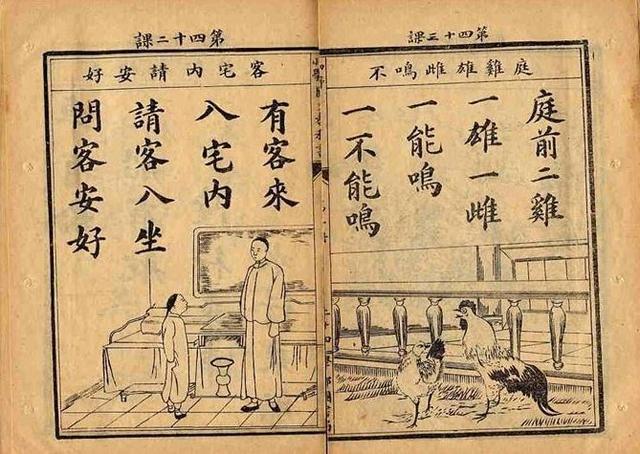 第四十三課
庭雞雄雌鳴不
庭前二雞
一雄一雌
一能鳴
一不能鳴
第四十二課
客宅內請安好
有客來
入宅內
請客入坐
問客安好